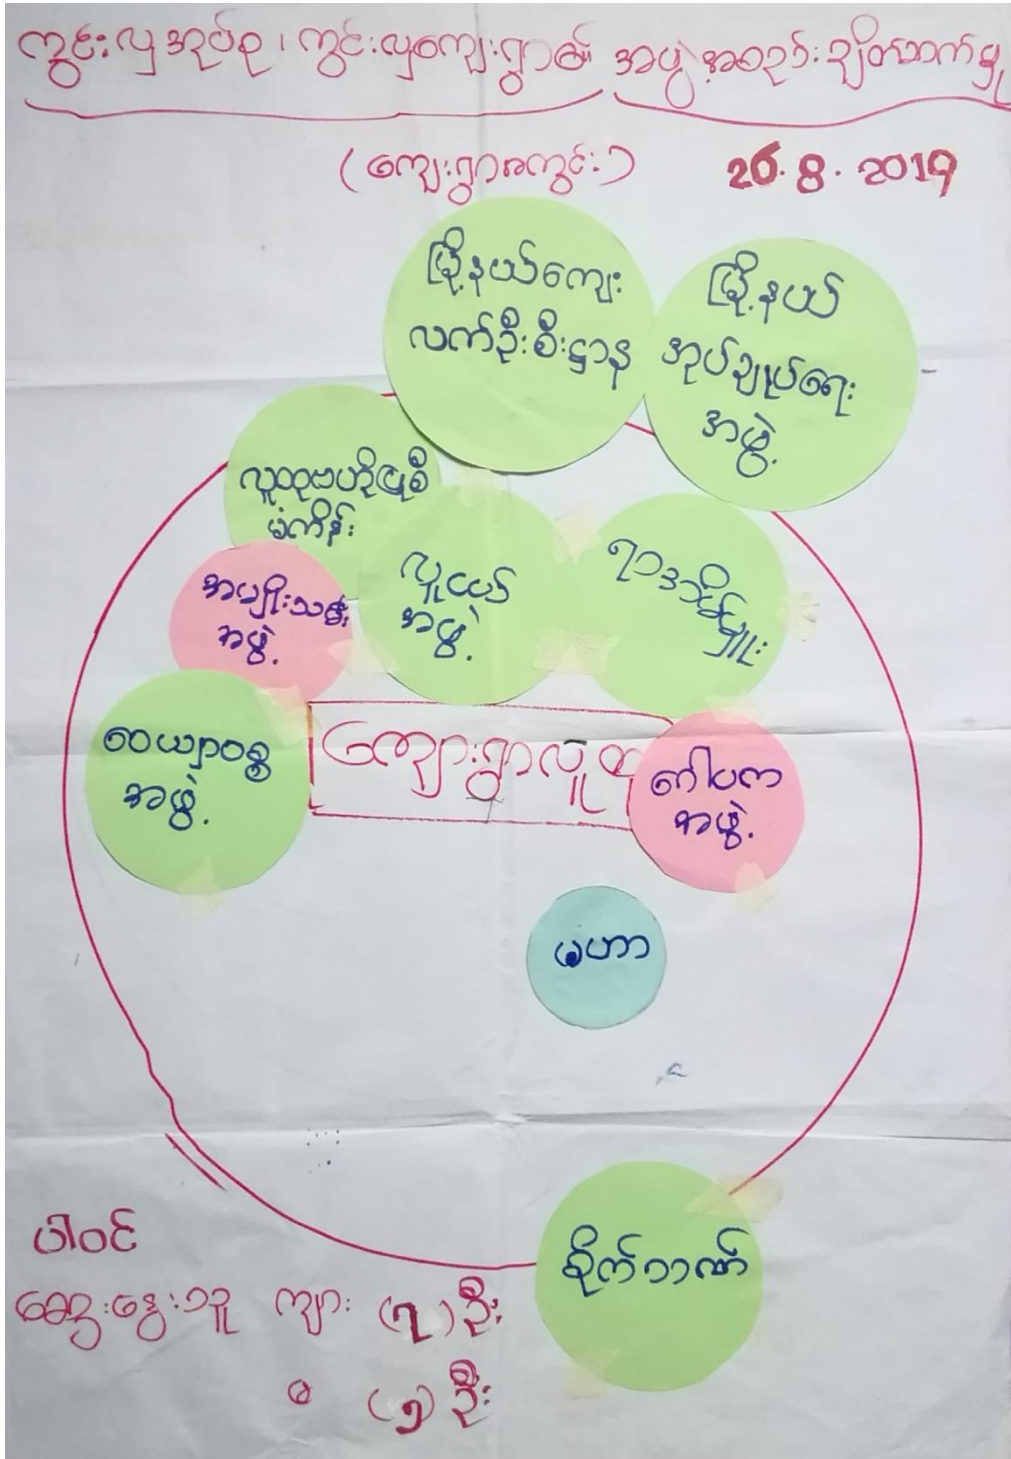 ကွင်းလှအုပ်စု၊ ကွင်းလှကျေးရွာ၏ အဖွဲ့အစည်းချိတ်ဆက်မှု
(ကျေးရွာအတွင်း)
26.8.2019
မြို့နယ်ကျေး
လက်ဦးစီးဌာန
မြို့နယ်
အုပ်ချုပ်ရေး
အဖွဲ့
လူထုဗဟိုပြုစီ
မံကိန်း
လူငယ်
အဖွဲ့
ရာအိမ်မှူး
အမျိုးသမီး
အဖွဲ့
ဝေယျာဝစ္စ
အဖွဲ့
ကျေးရွာလူထု
ဂေါပက
အဖွဲ့
မဟာ
စိုက်ဘဏ်
ပါဝင်
ဆွေးနွေးသူ ကျား (၇) ဦး
မ (၅) ဦး